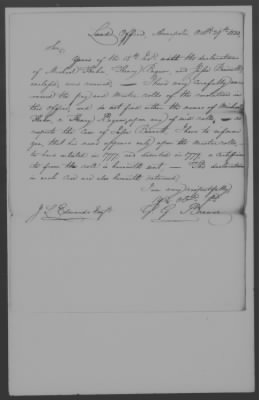 Land Office, Annapolis Octr 29th 1832
Sir,
Yours of the 18th Inst. with the declarations
of Michael Hahn, Henry and John
enclosed, was received — I have very carefully exa-
mined the pay and Muster rolls of the revolution in
this office, and do not find either the names of Michael
Hahn, or Henry any of said rolls, — as
respects the Case of John I have to inform
you, that his name appears only upon the muster rolls,
to have enlisted in 1777, and deserted in 1779, a certificate
to from the roll is herewith sent, — The declarations
in each case are also herewith returned,
I am very respectfully
Yr Obt. St
J L Edwards Esqr. G. G. Brewer